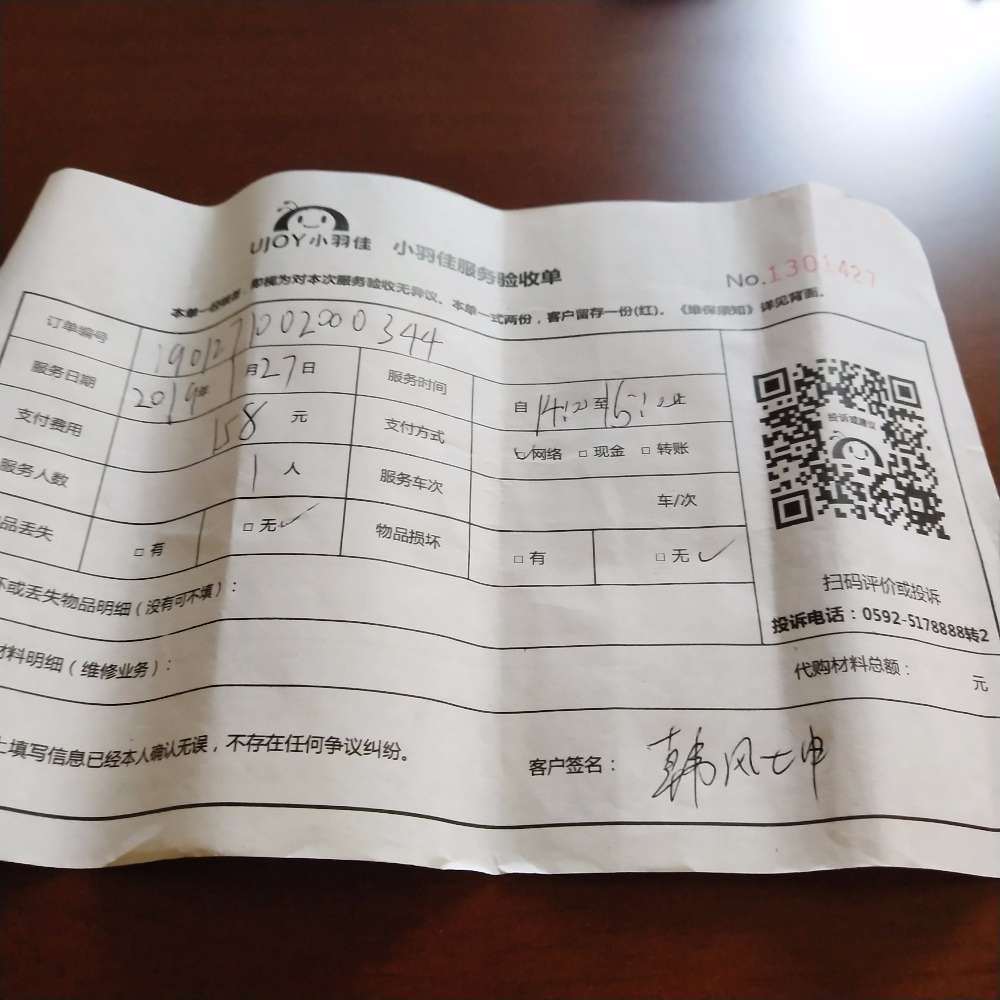 UJOY小羽佳 小羽佳服务验收单
No.1301427
本单一经签署，即视为对本次服务验收无异议。本单一式两份，客户留存一份(红)。《维保须知》详见背面。
订单编号 1901271002000344
服务日期 2019年1月27日 服务时间 自14:20至16:20止
支付费用 158元 支付方式 网络 现金 转账
服务人数 1人 服务车次 车/次
品丢失 有 无 物品损坏 有 无
坏或丢失物品明细（没有可不填）：
材料明细（维修业务）：
代购材料总额： 元
投诉或建议
扫码评价或投诉
投诉电话：0592-5178888转2
上填写信息已经本人确认无误，不存在任何争议纠纷。
客户签名： 韩风